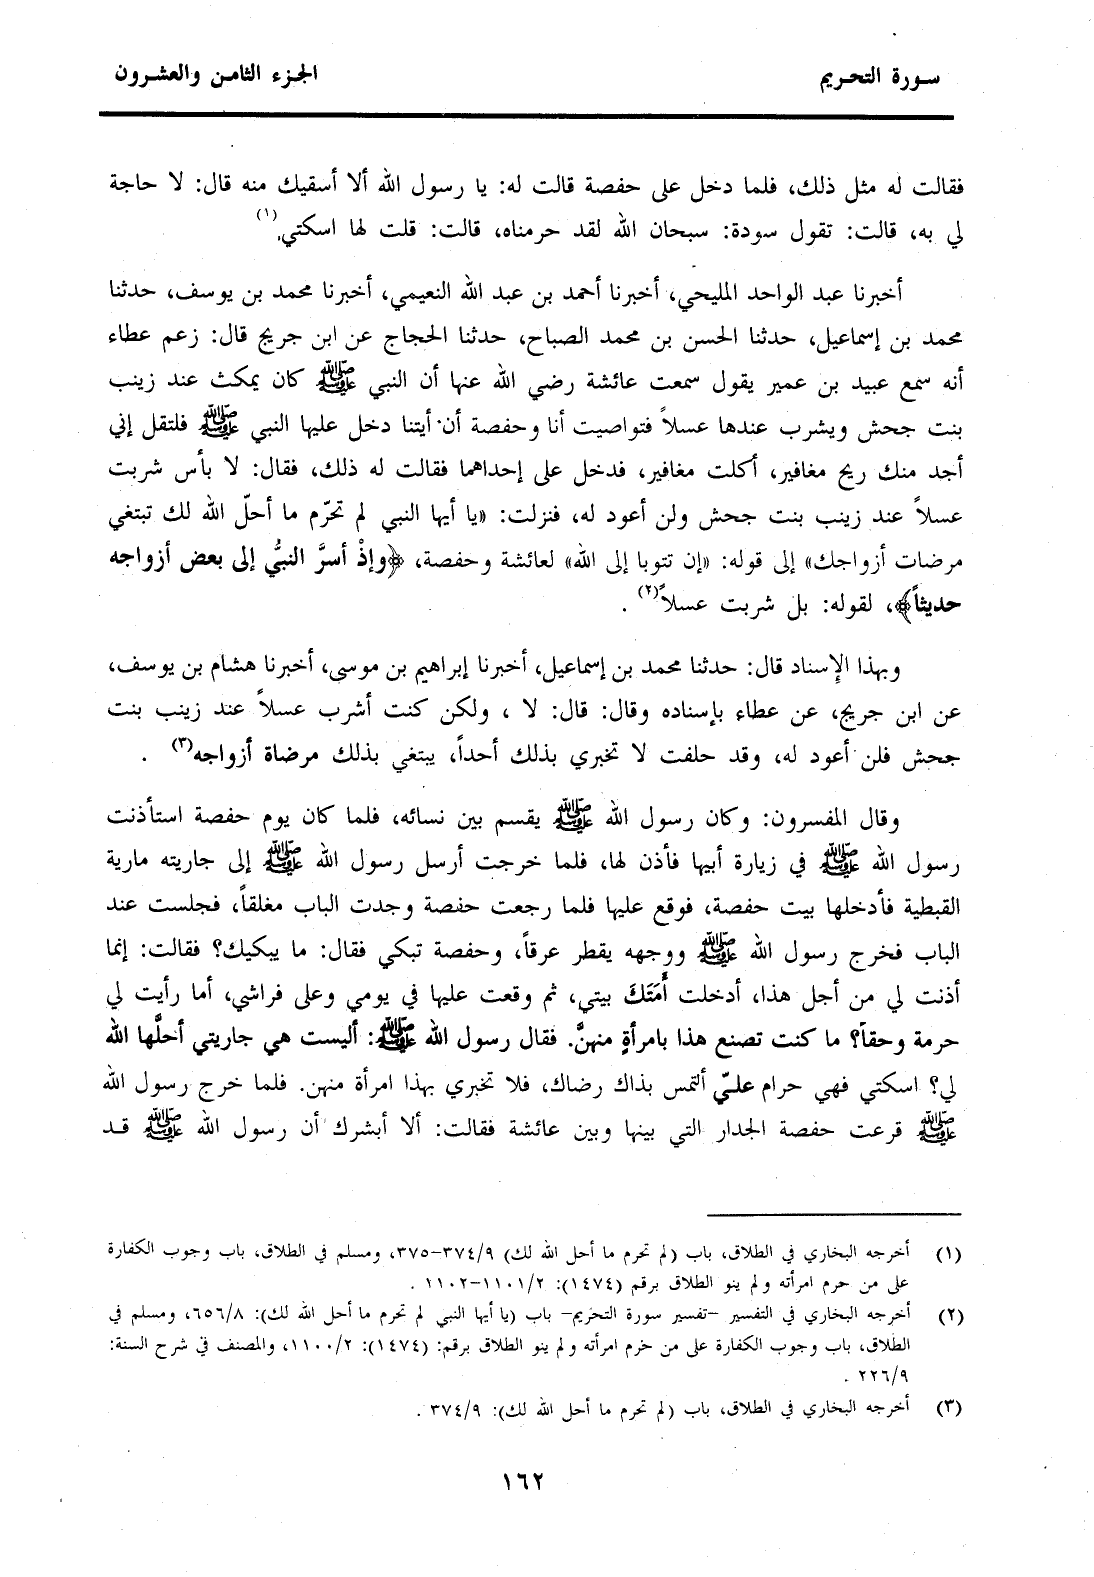 سورة التحريم
الجزء الثامن والعشرون
فقالت له مثل ذلك، فلما دخل على حفصة قالت له: يا رسول الله ألا أسقيك منه قال: لا حاجة
لي به، قالت: تقول سودة: سبحان الله لقد حرمناه، قالت: قلت لها اسكتي.(١)
أخبرنا عبد الواحد المليحي، أخبرنا أحمد بن عبد الله النعيمي، أخبرنا محمد بن يوسف، حدثنا
محمد بن إسماعيل، حدثنا الحسن بن محمد الصباح، حدثنا الحجاج عن ابن جريج قال: زعم عطاء
أنه سمع عبيد بن عمير يقول سمعت عائشة رضي الله عنها أن النبي ﷺ كان يمكث عند زينب
بنت جحش ويشرب عندها عسلاً فتواصيت أنا وحفصة أن أيتنا دخل عليها النبي ﷺ فلتقل إني
أجد منك ريح مغافير، أكلت مغافير، فدخل على إحداهما فقالت له ذلك، فقال: لا بأس شربت
عسلاً عند زينب بنت جحش ولن أعود له، فنزلت: «يا أيها النبي لم تحرّم ما أحلّ الله لك تبتغي
مرضات أزواجك» إلى قوله: «إن تتوبا إلى الله» لعائشة وحفصة، ﴿وإذْ أسرَّ النبيُّ إلى بعض أزواجه
حديثاً﴾، لقوله: بل شربت عسلاً(٢) .
وبهذا الإسناد قال: حدثنا محمد بن إسماعيل، أخبرنا إبراهيم بن موسى، أخبرنا هشام بن يوسف،
عن ابن جريج، عن عطاء بإسناده وقال: قال: لا ، ولكن كنت أشرب عسلاً عند زينب بنت
جحش فلن أعود له، وقد حلفت لا تخبري بذلك أحداً، يبتغي بذلك مرضاة أزواجه(٣) .
وقال المفسرون: وكان رسول الله ﷺ يقسم بين نسائه، فلما كان يوم حفصة استأذنت
رسول الله ﷺ في زيارة أبيها فأذن لها، فلما خرجت أرسل رسول الله ﷺ إلى جاريته مارية
القبطية فأدخلها بيت حفصة، فوقع عليها فلما رجعت حفصة وجدت الباب مغلقاً، فجلست عند
الباب فخرج رسول الله ﷺ ووجهه يقطر عرقاً، وحفصة تبكي فقال: ما يبكيك؟ فقالت: إنما
أذنت لي من أجل هذا، أدخلت أَمَتَكَ بيتي، ثم وقعت عليها في يومي وعلى فراشي، أما رأيت لي
حرمة وحقاً؟ ما كنت تصنع هذا بامرأةٍ منهنَّ. فقال رسول الله ﷺ: أليست هي جاريتي أحلَّها الله
لي؟ اسكتي فهي حرام عليّ ألتمس بذاك رضاك، فلا تخبري بهذا امرأة منهن. فلما خرج رسول الله
ﷺ قرعت حفصة الجدار التي بينها وبين عائشة فقالت: ألا أبشرك أن رسول الله ﷺ قد
(١) أخرجه البخاري في الطلاق، باب (لم تحرم ما أحل الله لك) ٩/ ٣٧٤-٣٧٥، ومسلم في الطلاق، باب وجوب الكفارة
على من حرم امرأته ولم ينو الطلاق برقم (١٤٧٤): ٢/ ١١٠١-١١٠٢ .
(٢) أخرجه البخاري في التفسير -تفسير سورة التحريم- باب (يا أيها النبي لم تحرم ما أحل الله لك): ٨/ ٦٥٦، ومسلم في
الطلاق، باب وجوب الكفارة على من حرم امرأته ولم ينو الطلاق برقم: (١٤٧٤): ٢/ ١١٠٠، والمصنف في شرح السنة:
٩/ ٢٢٦ .
(٣) أخرجه البخاري في الطلاق، باب (لم تحرم ما أحل الله لك): ٩/ ٣٧٤ .
١٦٢